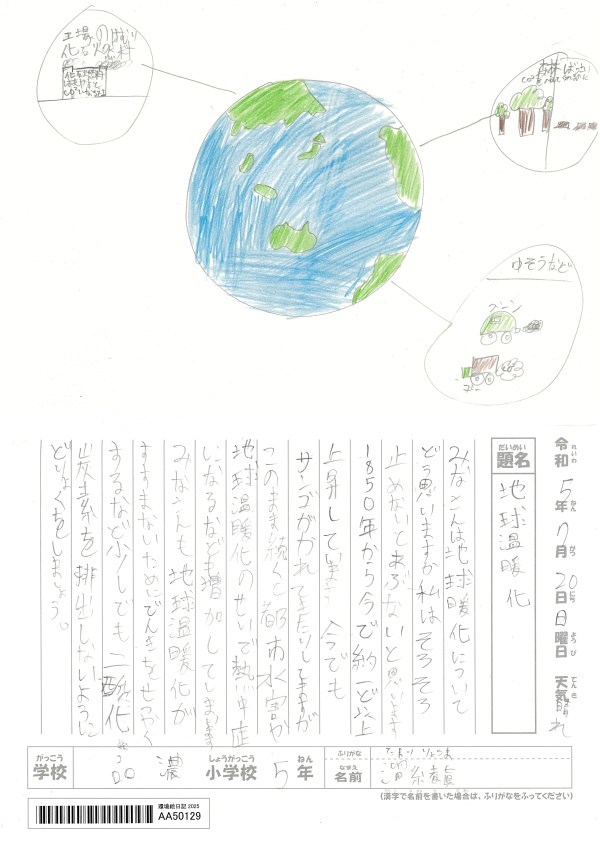 工場のけむり
化石燃料
化石燃料
森林ばっさい
ゆそうなど
ブーン
ブー
令和5年7月20日日曜日 天気晴れ
れいわ ねん がつ にち ようび てんき
だいめい
題名
地球温暖化
みなさんは地球暖化について
どう思いますか私はそろそろ
止めないとあぶないと思います
1850年から今で約一ど以上
上昇しています 今でも
サンゴがかれてきたりしてますが
このまま続くと都市水害が
地球温暖化のせいで熱中症
になるなども増加してしまいます
みなさんも地球温暖化が
すすまないためにでんきをせつやく
するなど少しでも二酸化
炭素を排出しないように
どりょくをしましょう。
がっこう
学校
品濃
しょうがっこう
小学校
5
ねん
年
ふりがな
なまえ
名前
(漢字で名前を書いた場合は、ふりがなをふってください)
環境絵日記 2025
AA50129